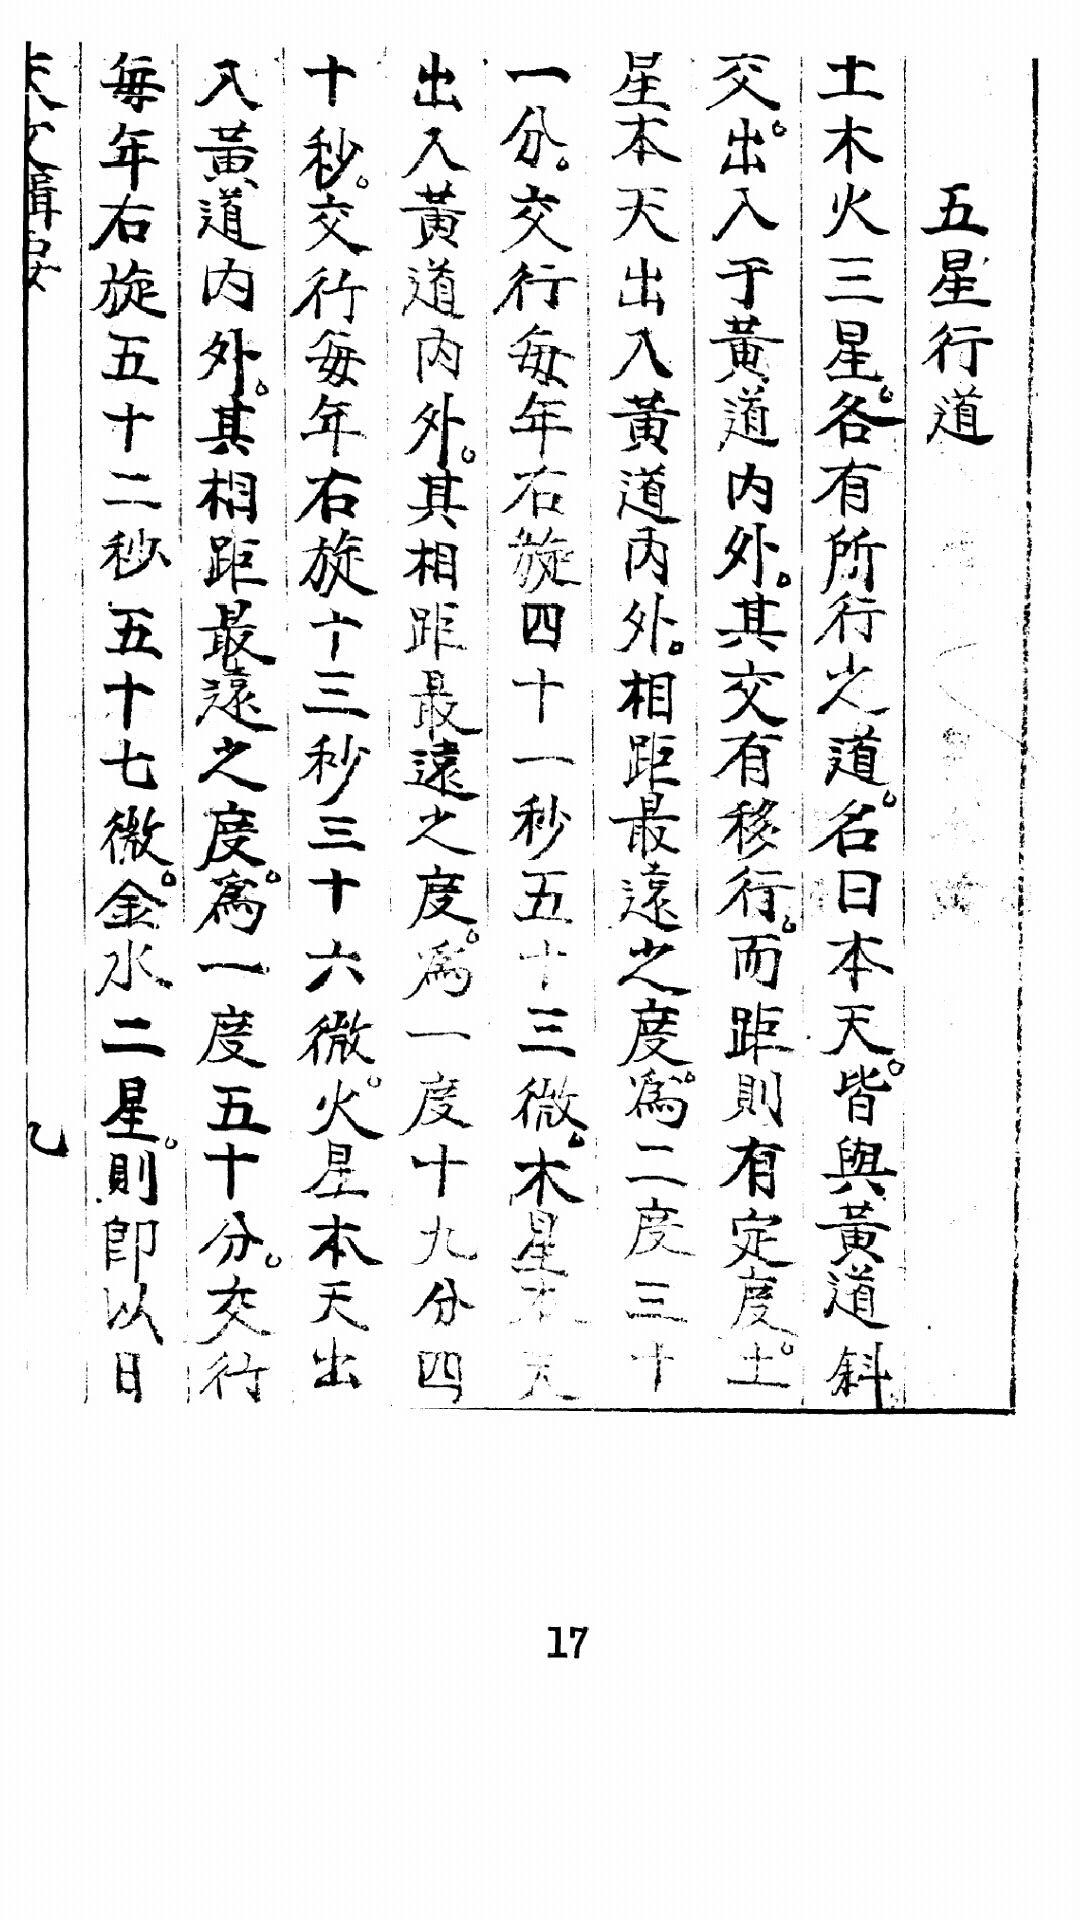 五星行道
土木火三星。各有所行之道。名曰本天。皆與黃道斜
交。出入于黃道內外。其交有移行。而距則有定度。土
星本天出入黃道內外。相距最遠之度。爲二度三十
一分。交行每年右旋四十一秒五十三微。木星本天
出入黃道內外。其相距最遠之度。爲一度十九分四
十秒。交行每年右旋十三秒三十六微。火星本天出
入黃道內外。其相距最遠之度。爲一度五十分。交行
每年右旋五十二秒五十七微。金水二星。則卽以日
天文輯要
九
17